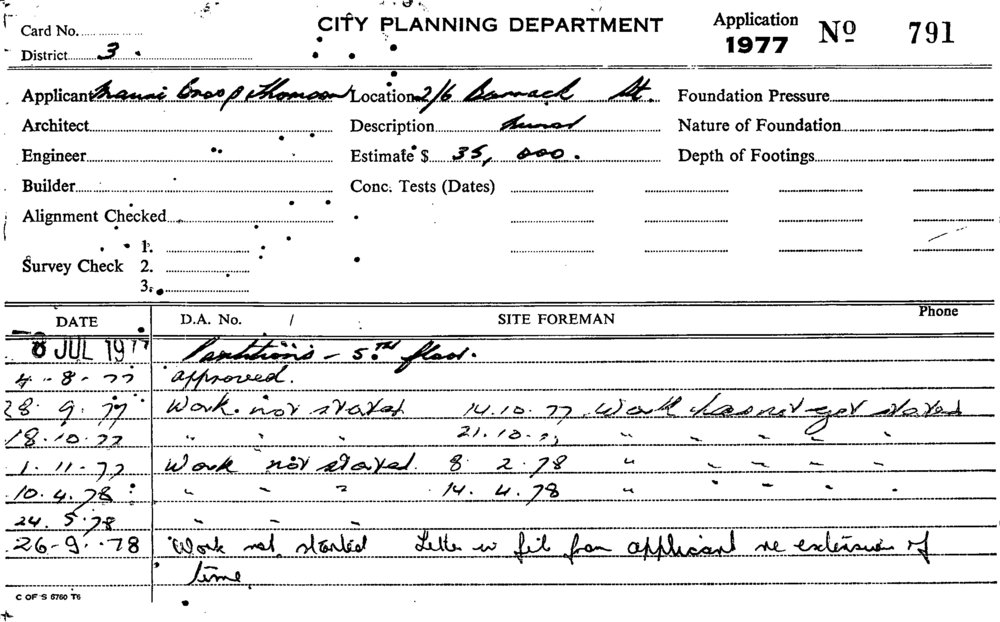 Card No.
CITY PLANNING DEPARTMENT
Application 1977 Nº 791
District 3.
Applicant Bros & Thomson Location 2/6 Barrack St. Foundation Pressure
Architect Description Nature of Foundation
Engineer Estimate $ 35,000. Depth of Footings
Builder Conc. Tests (Dates)
Alignment Checked
1.
Survey Check 2.
3.
DATE D.A. No. / SITE FOREMAN Phone
8 JUL 1977 Partitions - 5TH floor.
4-8-77 approved.
28.9.77 Work not started 14.10.77 Work has not yet started
18.10.77 " " " 21.10.77 " " " " "
1.11.77 Work not started. 8 2.78 " " " " "
10.4.78 " " " 14.4.78 " " " " "
24.5.78 " " "
26-9-78 Work not started Letter in file from applicant re extension of
time
C OF S 6760 T6